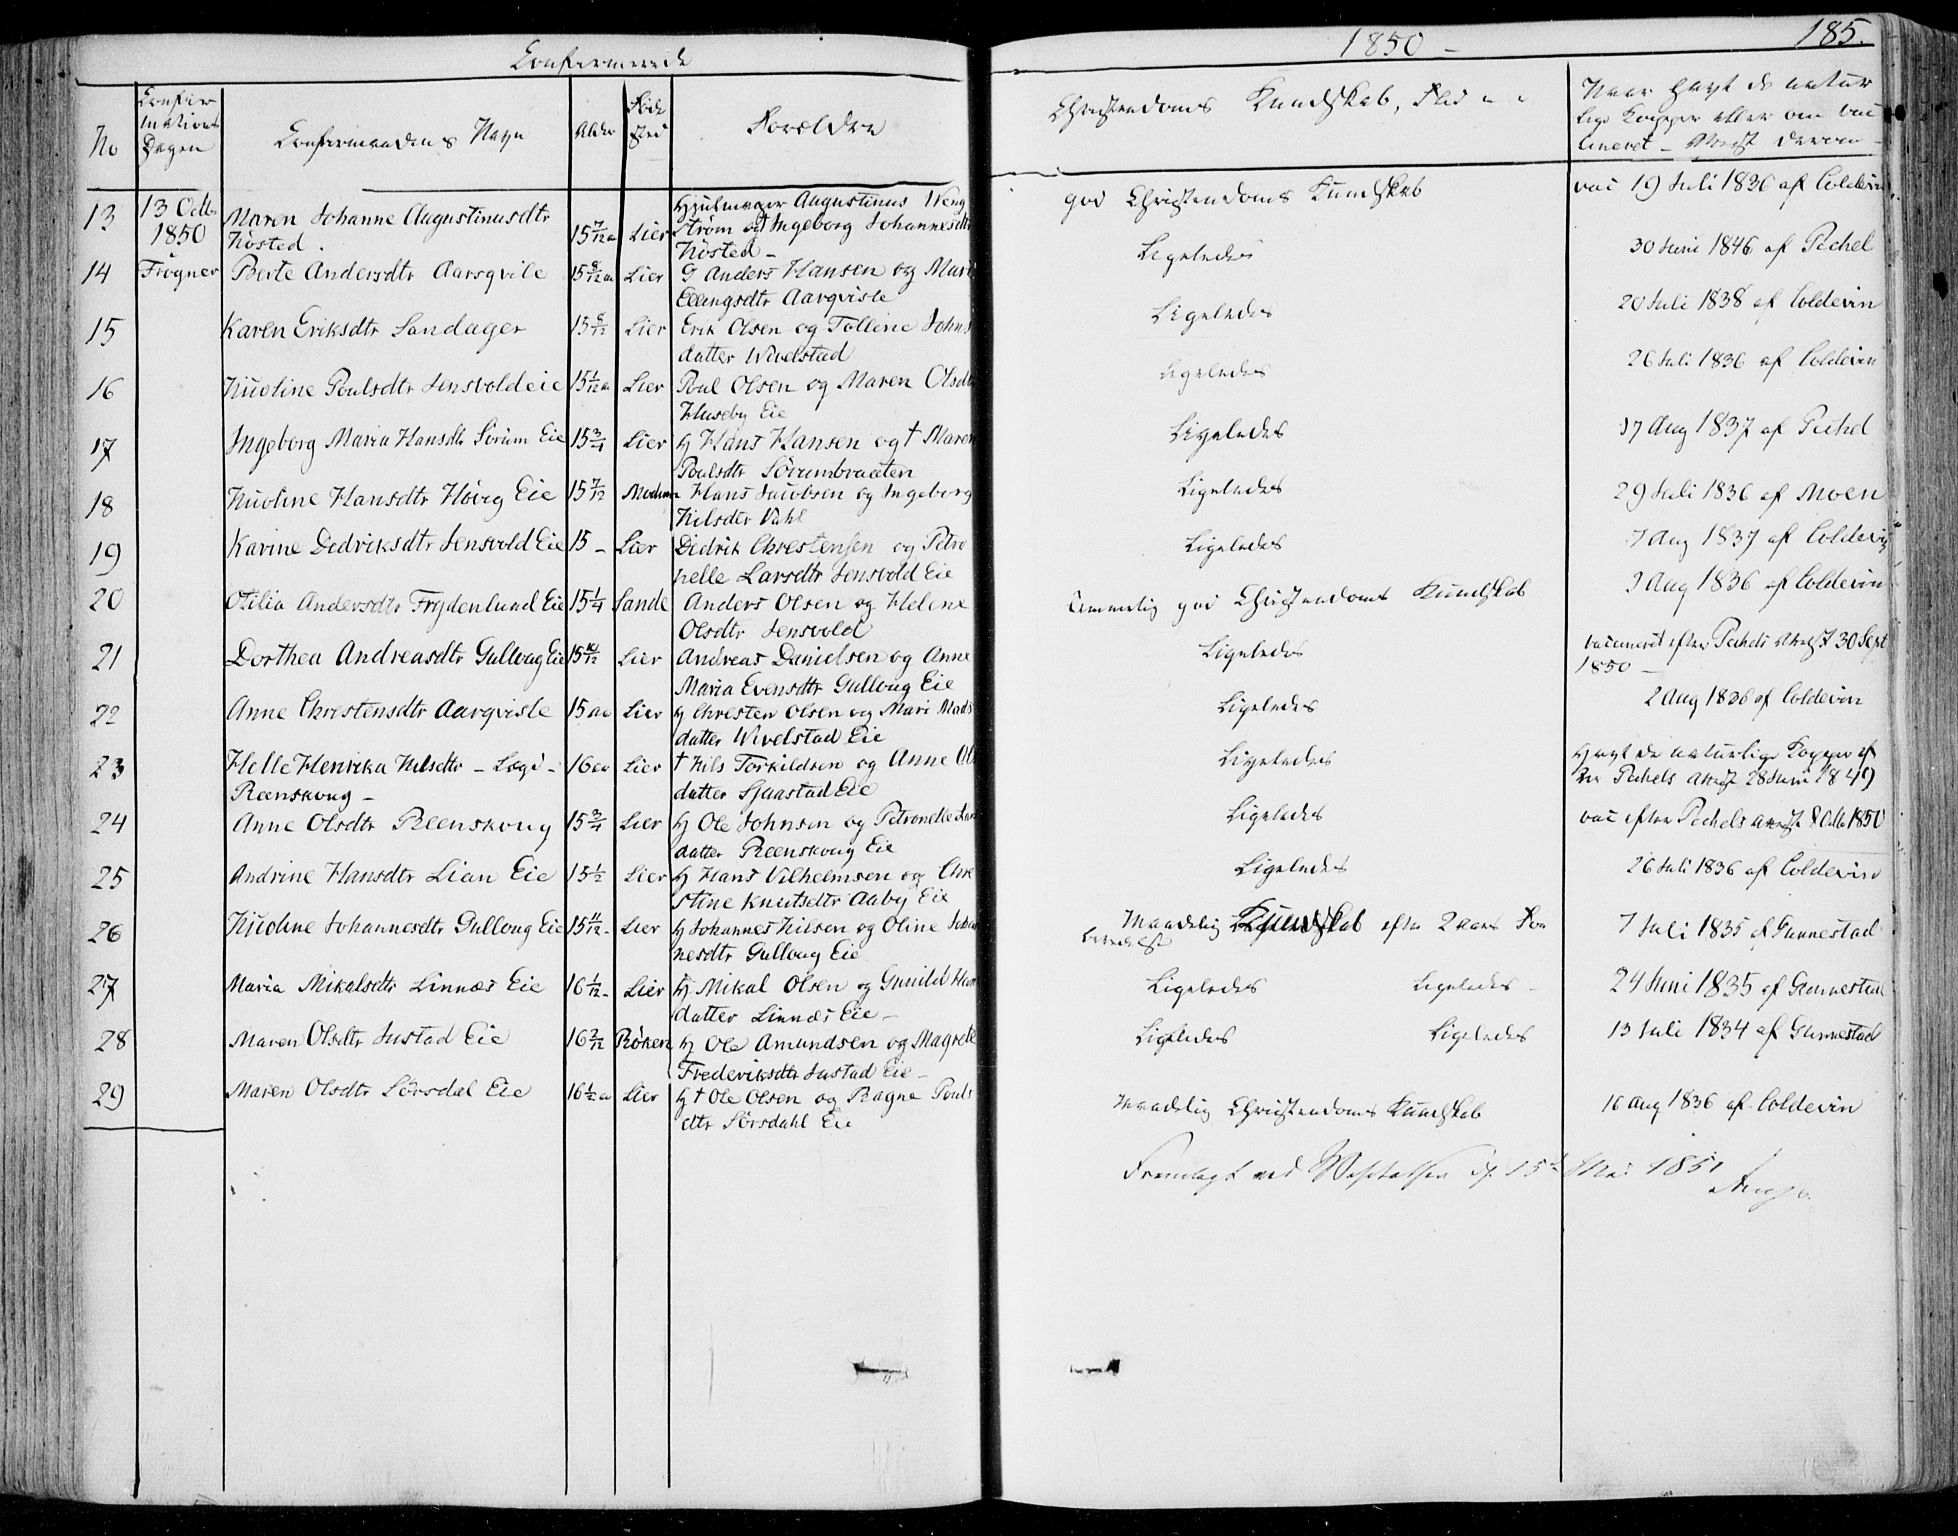 Confirmerede
1850 - 185.
No
Confir
mations
Dagen
Confirmandens Navn
Alder
Føde
sted
Forældre
Christendoms Kundskab, Flid " "
Naar havt de natur
lige Kopper eller om vac
cineret - Attest derom -
13 13 Octb Maren Johanne Augustinusdtr 15 7/12 a Lier Hjulmager Augustinus Weng god Christendoms Kundskab vac 19 Juli 1836 af Coldevin
1850 Nösted. ström og Ingeborg Johannesdtr
Nösted -
14 Frogner Berte Andersdtr Aarsqvile 15 8/12 aa Lier G Anders Hansen og Mari Ligeledes 30 Juni 1846 af Pechel
Ellingsdtr Aarqvisle
15 Karen Eriksdtr Sandager 15 8/12 Lier Erik Olsen og Tolline Johns Ligeledes 20 Juli 1838 af Coldevin
datter Wivelstad
16 Nicoline Poulsdtr Jensvoldeie 15 1/12 a Lier Poul Olsen og Maren Olsdtr Ligeledes 26 Juli 1836 af Coldevin
Huseby Eie
17 Ingeborg Maria Hansdtr Sörum Eie 15 3/4 Lier Hans Hansen og † Maren Ligeledes 17 Aug 1837 af Pechel
Poulsdtr Sörumbraaten
18 Nicoline Hansdtr Hövig Eie 15 7/12 Modum Hans Jacobsen og Ingeborg Ligeledes 29 Juli 1836 af Moen
Nilsdtr Vahl
19 Karine Dedriksdtr Jensvold Eie 15 - Lier Diedrik Christensen og Petro Ligeledes 7 Aug 1837 af Coldevin
nelle Larsdtr Jensvold Eie
20 Otilia Andersdtr Frydenlund Eie 15 1/4 Sande Anders Olsen og Helene temmelig god Christendoms Kundskab 3 Aug 1836 af Coldevin
Olsdtr Jensvold
21 Dorthea Andreasdtr Gulloug Eie 15 10/12 Lier Andreas Danielsen og Anne Ligeledes vaccineret efter Pechels Attest 30 Sept
Maria Evensdtr Gulloug Eie 1850 -
22 Anne Christensdtr Aarqvisle 15 aa Lier Christen Olsen og Mari Mads Ligeledes 2 Aug 1836 af Coldevin
datter Wivelstad Eie
23 Helle Henrika Nilsdtr - Logi - 16 aa Lier † Nils Torkildsen og Anne Ols Ligeledes Havt de naturlige Kopper ef
Reenskoug - datter Sjaastad Eie ter Pechels Attest 28 Juni 1849
24 Anne Olsdtr Reenskoug 15 3/4 Lier Ole Johnsen og Petronelle Lars Ligeledes vac efter Pechels Attest 8 Octb 1850
datter Reenskoug Eie
25 Andrine Hansdtr Lian Eie 15 1/2 Lier Hans Vilhelmsen og Chri Ligeledes 26 Juli 1836 af Coldevin
stine Knutsdtr Aaby Eie
26 Nicoline Johannesdtr Gulloug Eie 15 11/12 - Lier Johannes Nilsen og Oline Johan Maadelig Kundskab efter 2 aars For 7 Juli 1835 af Gunnestad
nesdtr Gulloug Eie beredelse
27 Maria Mikalsdtr Linnæs Eie 16 1/12 - Lier Mikal Olsen og Gunild Hans Ligeledes Ligeledes - 24 Juni 1835 af Gunnestad
datter Linnæs Eie -
28 Maren Olsdtr Justad Eie 16 2/12 Röken Ole Amundsen og Magrete Ligeledes Ligeledes 13 Juli 1834 af Gunnestad
Frederiksdtr Justad Eie -
29 Maren Olsdtr Sörsdal Eie 16 1/2 a Lier † Ole Olsen og Ragne Pouls Maadelig Christendoms Kundskab 16 Aug 1836 af Coldevin
dtr Sörsdahl Eie
Fremlagt ved Visitatsen d. 15 Mai 1851